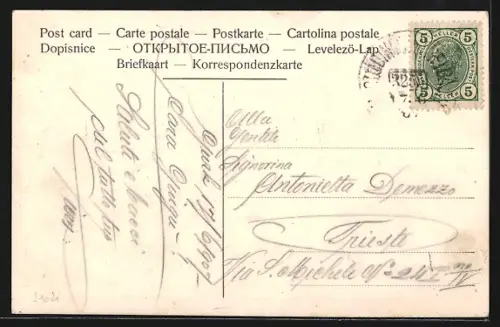 Post card — Carte postale — Postkarte — Cartolina postale
Dopisnice — ОТКРЫТОЕ-ПИСЬМО — Levelező-Lap
Briefkaart — Korrespondenzkarte
5 HELLER 5
5 5
Alla
Gentile
Signorina
Antonietta Demezzo
Trieste
Via S. Michele N°
17/6 1907
Cara
Saluti e baci
dal tutto tuo